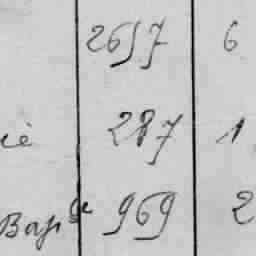 2657 6
ié 287 1
Bap^se 969 2